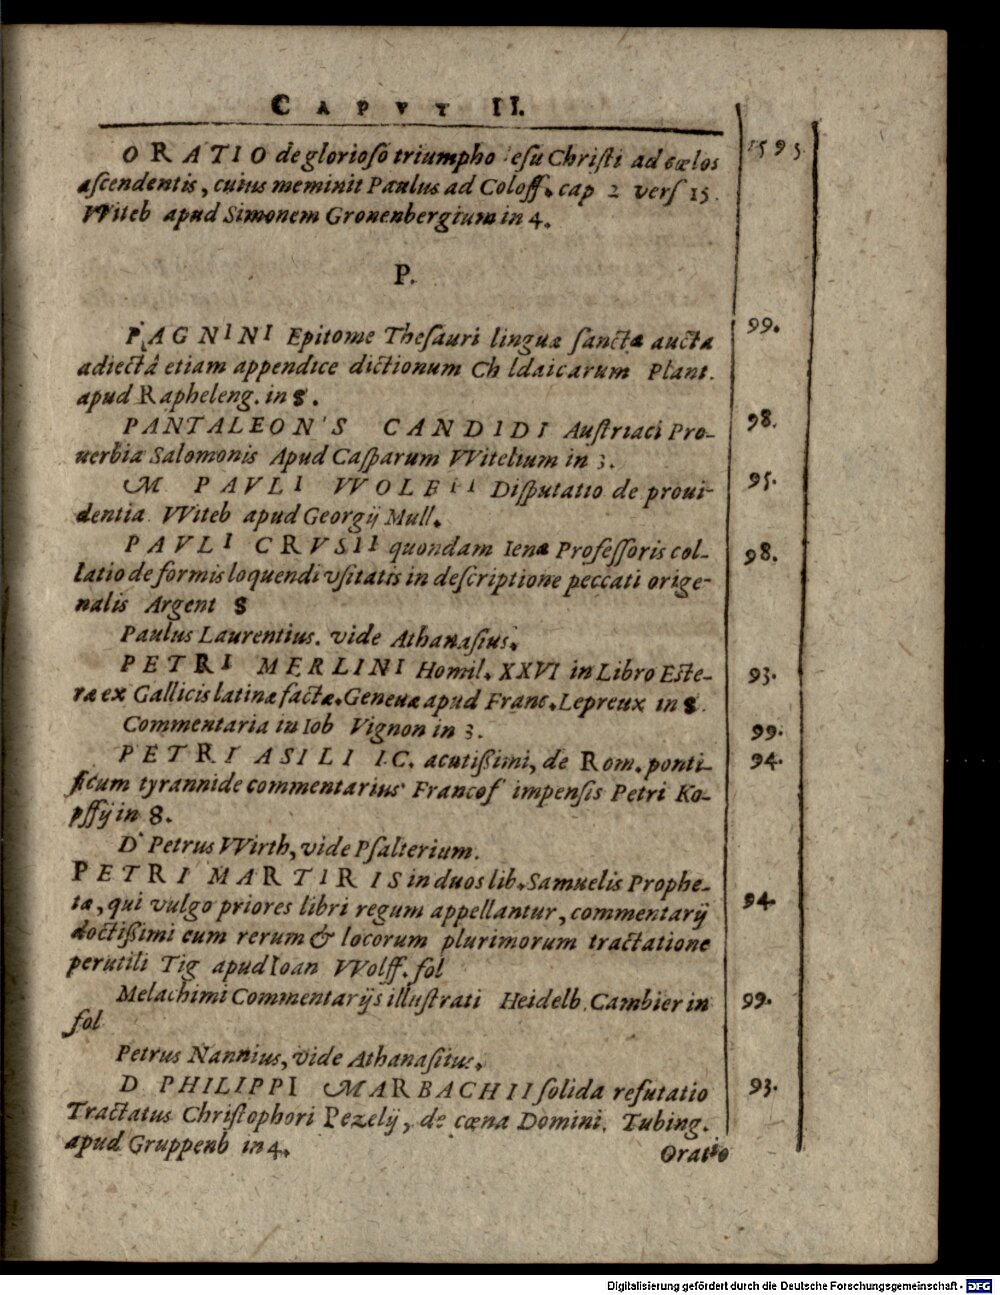 CAPVT II.
ORATIO de glorioso triumpho esu Christi ad cœlos 1595.
ascendentis, cuius meminit Paulus ad Coloss. cap 2 vers 15.
Witeb apud Simonem Gronenbergium in 4.
P.
PAGNINI Epitome Thesauri linguæ sanctæ aucta 99.
adiectâ etiam appendice dictionum Ch ldaicarum Plant.
apud Rapheleng. in 8.
PANTALEON'S CANDIDI Austriaci Pro- 98.
uerbia Salomonis Apud Casparum VVitelium in 3.
M PAVLI VVOLFII Disputatio de proui- 95.
dentia VViteb apud Georgij Mull.
PAVLI CRVSII quondam Ienæ Professoris col- 98.
latio de formis loquendi vsitatis in descriptione peccati orige-
nalis Argent 8
Paulus Laurentius. vide Athanasius.
PETRI MERLINI Homil. XXVI in Libro Este- 93.
ræ ex Gallicis latinæ factæ. Geneuæ apud Franc. Lepreux in 8.
Commentaria in Iob Vignon in 3. 99.
PETRI ASILI I.C. acutißimi, de Rom. ponti- 94.
ficum tyrannide commentarius Francof impensis Petri Ko-
pffij in 8.
D Petrus VVirth, vide Psalterium.
PETRI MARTIRIS in duos lib. Samuelis Prophe-
tæ, qui vulgo priores libri regum appellantur, commentarij 94.
doctißimi cum rerum & locorum plurimorum tractatione
perutili Tig apud Ioan VVolff. fol
Melachimi Commentarijs illustrati Heidelb. Cambier in 99.
fol
Petrus Nannius, vide Athanasius.
D PHILIPPI MARBACHII solida refutatio 93.
Tractatus Christophori Pezelij, de cœna Domini. Tubing.
apud Gruppenb in 4.
Oratio
Digitalisierung gefördert durch die Deutsche Forschungsgemeinschaft - DFG